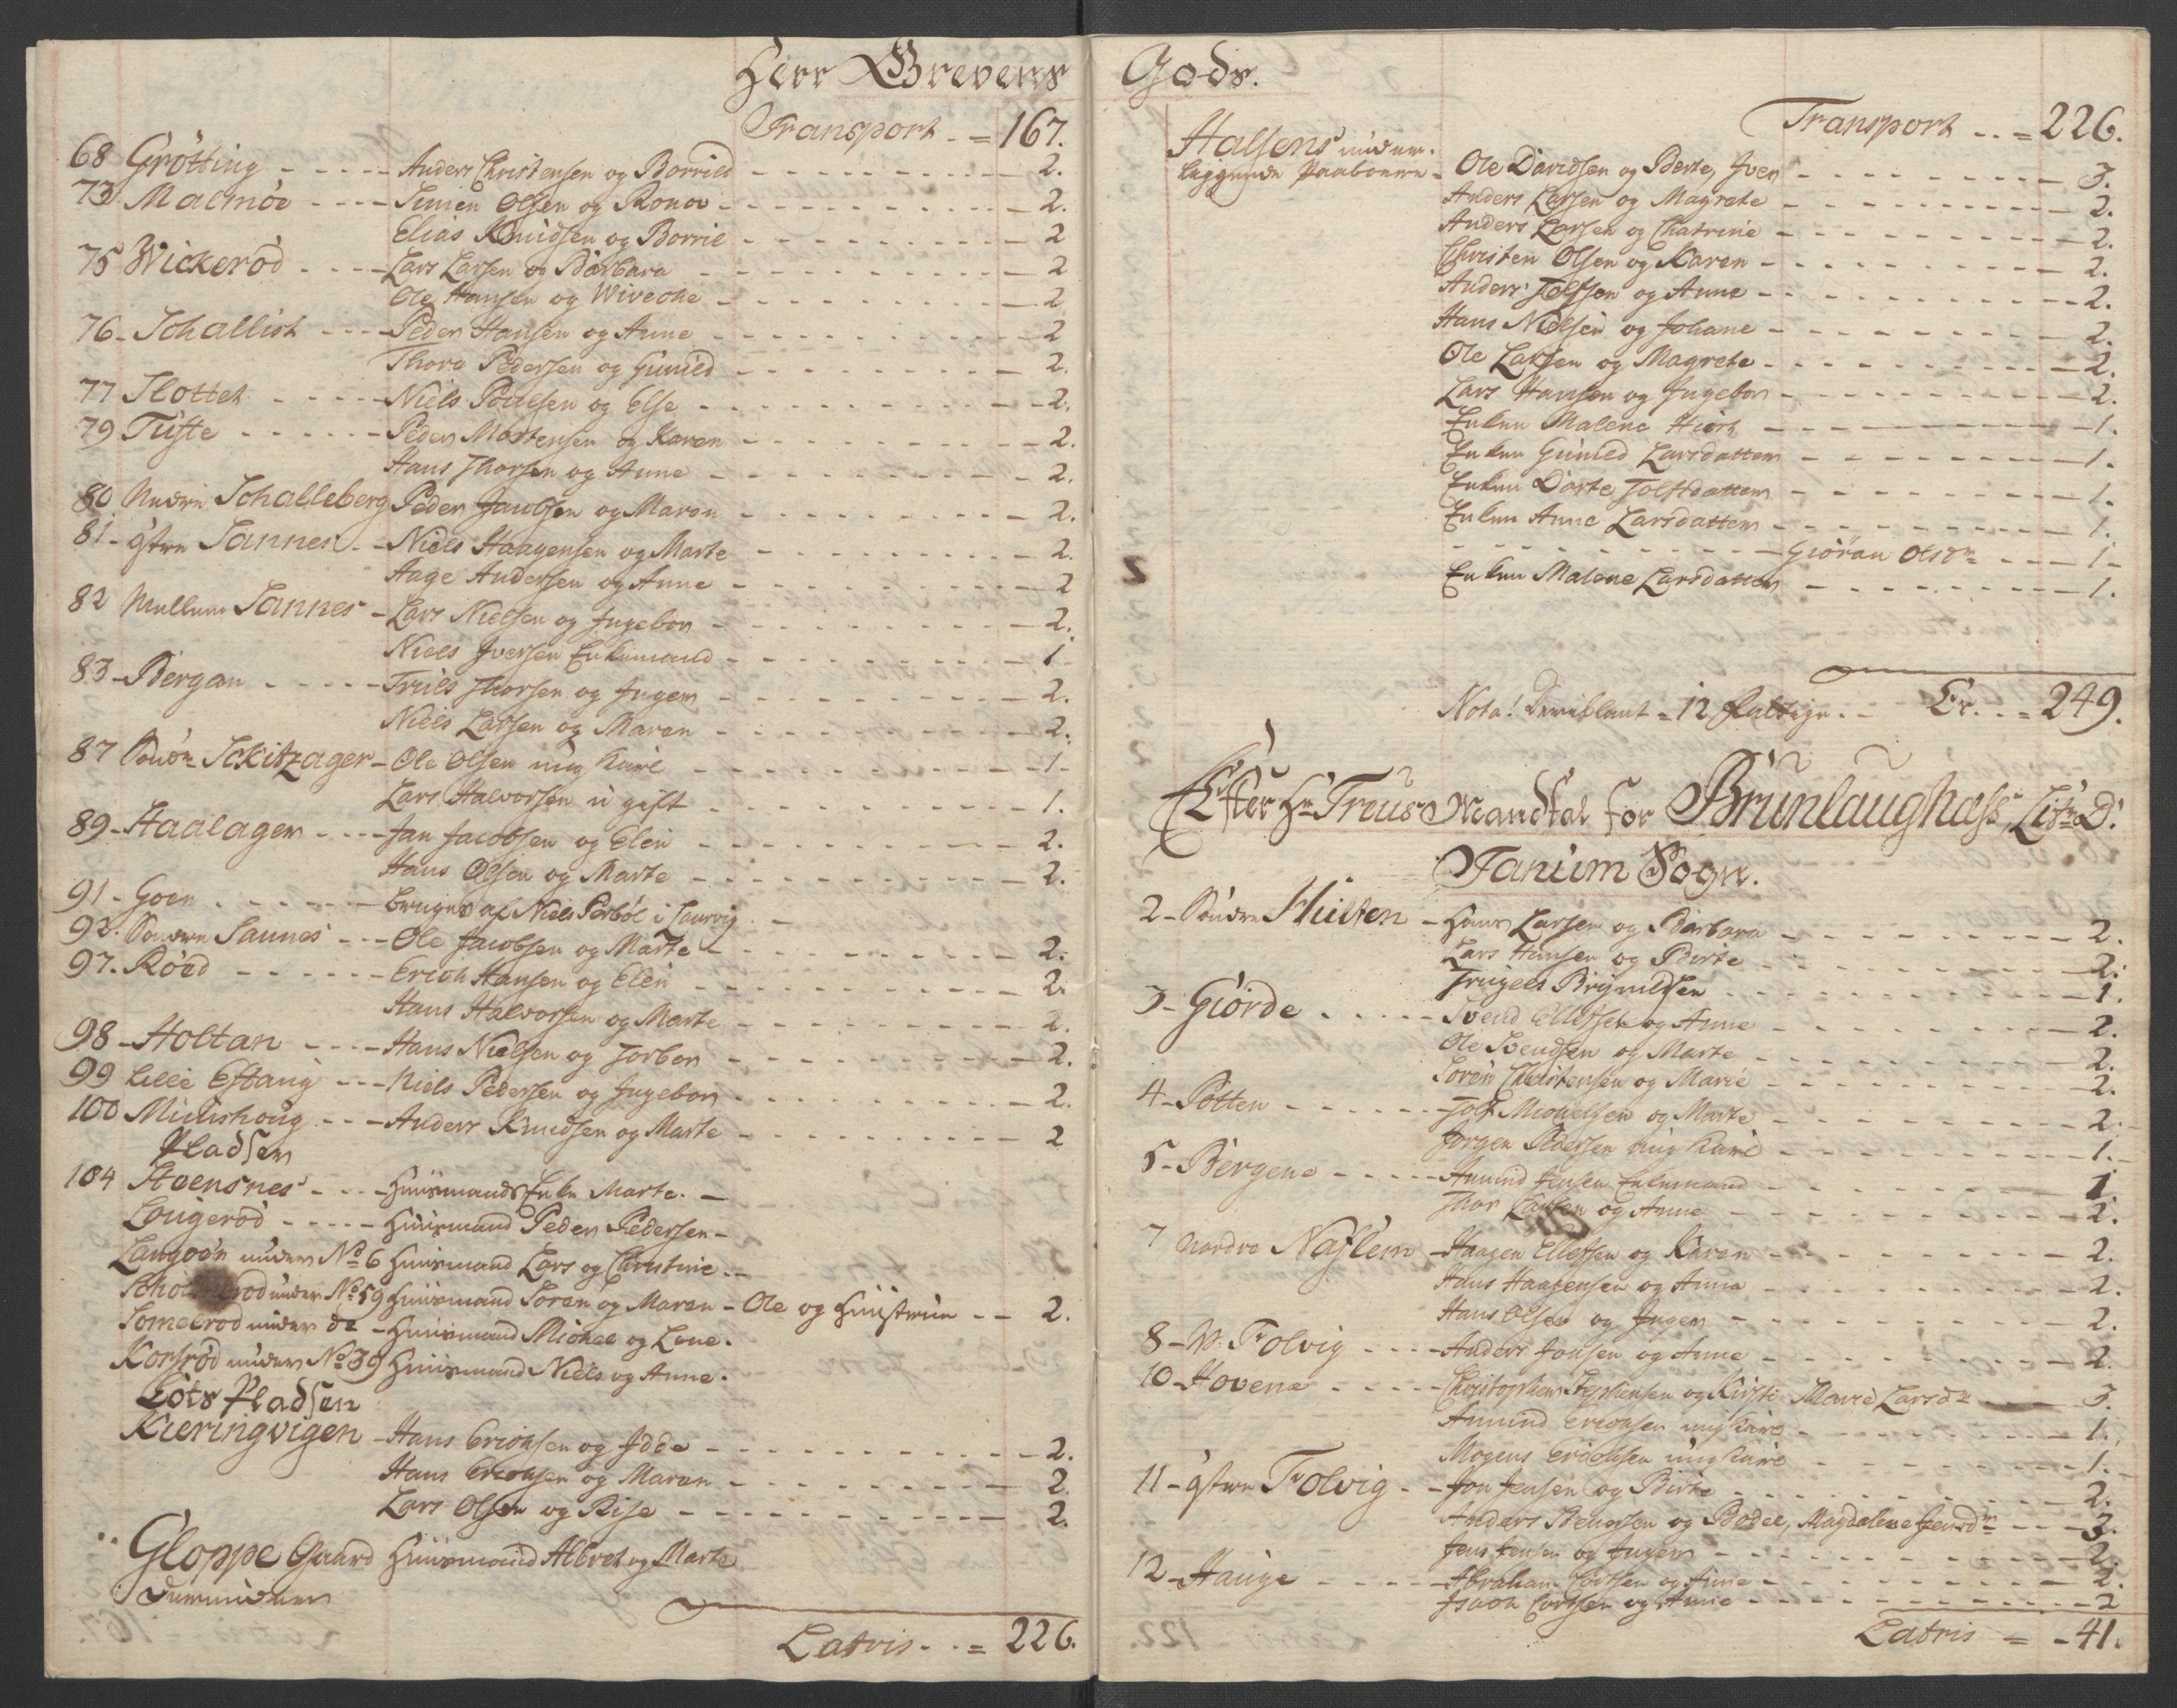 Herr Grevens
Transport - = 167.
68 Grötting - - - - - Anders Christensen og Borrild - - - 2.
73 Malmöe - - - - Simen Olsen og Ronov - - - 2.
Elias Knudsen og Borrie - - - 2
75 Wickeröd - - - - Lars Larsen og Barbara - - - 2
Ole Hansen og Wiveche - - - 2
76 - Schallist - - - - Peder Hansen og Anne - - - 2
Thore Pedersen og Gunild - - - 2.
77 Slottet - - - - Niels Poulsen og Else - - - 2.
79 Tufte - - - - Peder Mortensen og Karen - - - 2.
Hans Thorsen og Anne - - - 2.
80 Nedre Schalleberg Peder Jacobsen og Maren - - - 2.
81 - östre Sannes - - Niels Haagensen og Marte - - - 2.
Aage Andersen og Anne - - - 2
82 Mellem Sannes - Lars Nielsen og Ingebor - - - 2.
Niels Iversen Enkemand - - - 1
83 - Bergan - - - - Truls Thorsen og Inger - - - 2.
Niels Larsen og Maren - - - 2.
87 Söndr Sckitzager - Ole Olsen ung karl - - - 1 -
Lars Halvorsen u gift - - - 1.
89 - Haalager - - - Jan Jacobsen og Elen - - - 2.
Hans Olsen og Marte - - - 2.
91 - Goen - - - - bruges af Niels Sörböl i Laurvig - -
92. Söndre Sannes - - - Ole Jacobsen og Marte - - - 2.
97. Röed - - - - Erich Hansen og Elen - - - 2.
Hans Halvorsen og Marte - - - 2.
98 - Holtan - - - - Hans Nielsen og Torbor - - - 2.
99 Lille Eftang - - - Niels Pedersen og Ingebor - - - 2.
100 Mielishoug - - - Anders Knudsen og Marte - - - 2
Pladser
104 Steensnes - - - Huusmands Enke Marte. -
Löugeröd - - - - Huusmand Peder Pedersen -
Langöen under No 6 Huusmand Lars og Christine - -
under No 59 Huusmand Soren og Maren - Ole og Huustrue - - 2.
Someröd under do - Huusmand Michel og Lene.
Korsröd under No 39 Huusmand Niels og Anne.
Lots Pladsen
Kieringvigen - Hans Erichsen og Idde - - - 2.
Hans Erichsen og Maren - - - 2.
Lars Olsen og Rise - - - 2.
Gloppe Gaard Huusmand Albret og Marte
Latris - - = 226.
Gods.
Transport - - = 226.
Halsens under-
liggende Paaboere - Ole Davidsen og Berte, Iver - - - 3.
Anders Larsen og Magrete - - - 2.
Anders Larsen og Chatrine - - - 2.
Christen Olsen og Karen - - - 2.
Anders Tolfsen og Anne - - - 2.
Hans Nielsen og Johane - - - 2.
Ole Larsen og Magrete - - - 2.
Lars Hansen og Ingebor - - - 2.
Enken Malene Hiort - - - 1.
Enken Gunild Larsdatter - - - 1.
Enken Dorte Tolfsdatter - - - 1.
Enken Anne Larsdatter - - - 1.
- - - Giöran Olsdr - - - 1 -
Enken Malene Larsdatter - - - 1.
Nota! Deriblant = 12 fattige. - Er. - = 249.
Efter Hr Treus Mandtal for Brunlaughass Litr D:
Tanum Sogn.
2 - Söndre Hulten - Hans Larsen og Barbara - - - 2.
Lars Hansen og Birte - - - 2.
Trugels Brynildsen - - - 1.
3 - Giörde - - - - Svend Ellefsen og Anne - - - 2.
Ole Svendsen og Marte - - - 2.
Soren Christensen og Marie - - - 2.
4 - Pötten - - - - Tolf Michelsen og Marte - - - 2.
Jorgen Pedersen ung karl - - - 1.
5 - Bergene - - - - Amund Jensen Enkemand - - - 1.
Thor Larsen og Anne - - - 2.
7 Nordre Naflem - Haagen Ellefsen og Karen - - - 2.
Hans Haagensen og Anna - - - 2.
Hans Olsen og Inger - - - 2.
8 - W. Folvig - - - - Anders Jonsen og Anne - - - 2.
10 - Hovene - - - - Christopher Stephensen og Kirsti Marie Larsdr - - 3.
Amund Erichsen ung karl - - - 1.
Mogens Erichsen ung karl - - - 1.
11 - östre Folvig - - Jon Jensen og Birte - - - 2.
Anders og Bodel, Magdalene Jensdr - - - 3.
Jens Jensen og Inger - - - 2.
12 - Hauge - - - - Abraham Cortsen og Anne - - - 2.
Isach Cortsen og Anne - - - 2
Latris = - 41.